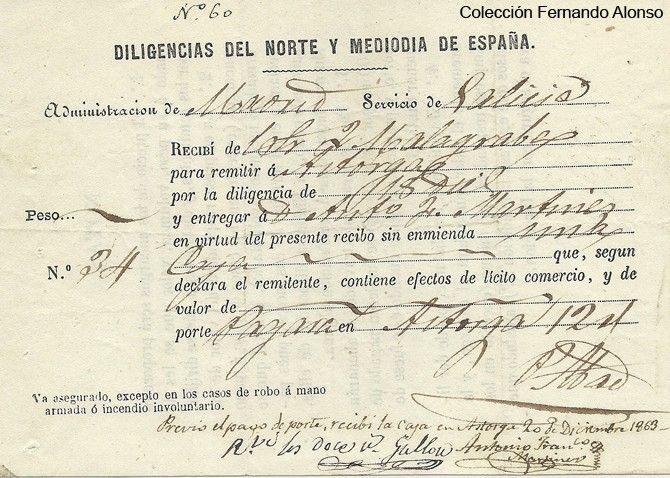 Colección Fernando Alonso
N.º 60
DILIGENCIAS DEL NORTE Y MEDIODIA DE ESPAÑA.
Administracion de Madrid Servicio de Galicia
RECIBÍ de
para remitir á Astorga
por la diligencia de 18 Dic
Peso...
y entregar á D. Antº F. Martinez
en virtud del presente recibo sin enmienda una
N.º 34 Caja que, segun
declara el remitente, contiene efectos de lícito comercio, y de
valor de
porte Pagará en Astorga 12 rl
Abad
Va asegurado, excepto en los casos de robo á mano
armada ó incendio involuntario.
Previo el pago de porte, recibí la caja en Astorga 20 de Diciembre 1863
R.vi los doce r.s Gullon
Antonio Fran.co
Martinez